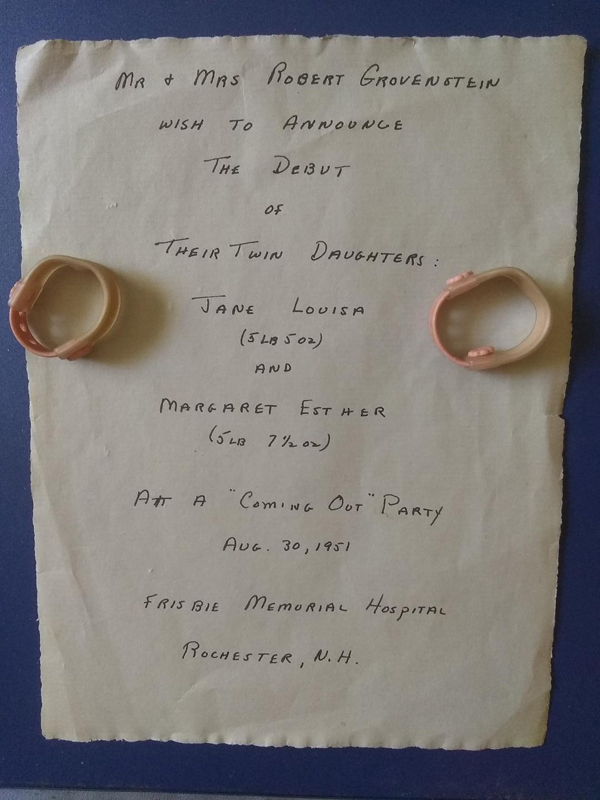 MR & MRS ROBERT GROVENSTEIN
WISH TO ANNOUNCE
THE DEBUT
OF
THEIR TWIN DAUGHTERS:
JANE LOUISA
(5 LB 5 oz)
AND
MARGARET ESTHER
(5 LB 7½ oz)
AT A "COMING OUT" PARTY
AUG. 30, 1951
FRISBIE MEMORIAL HOSPITAL
ROCHESTER, N.H.